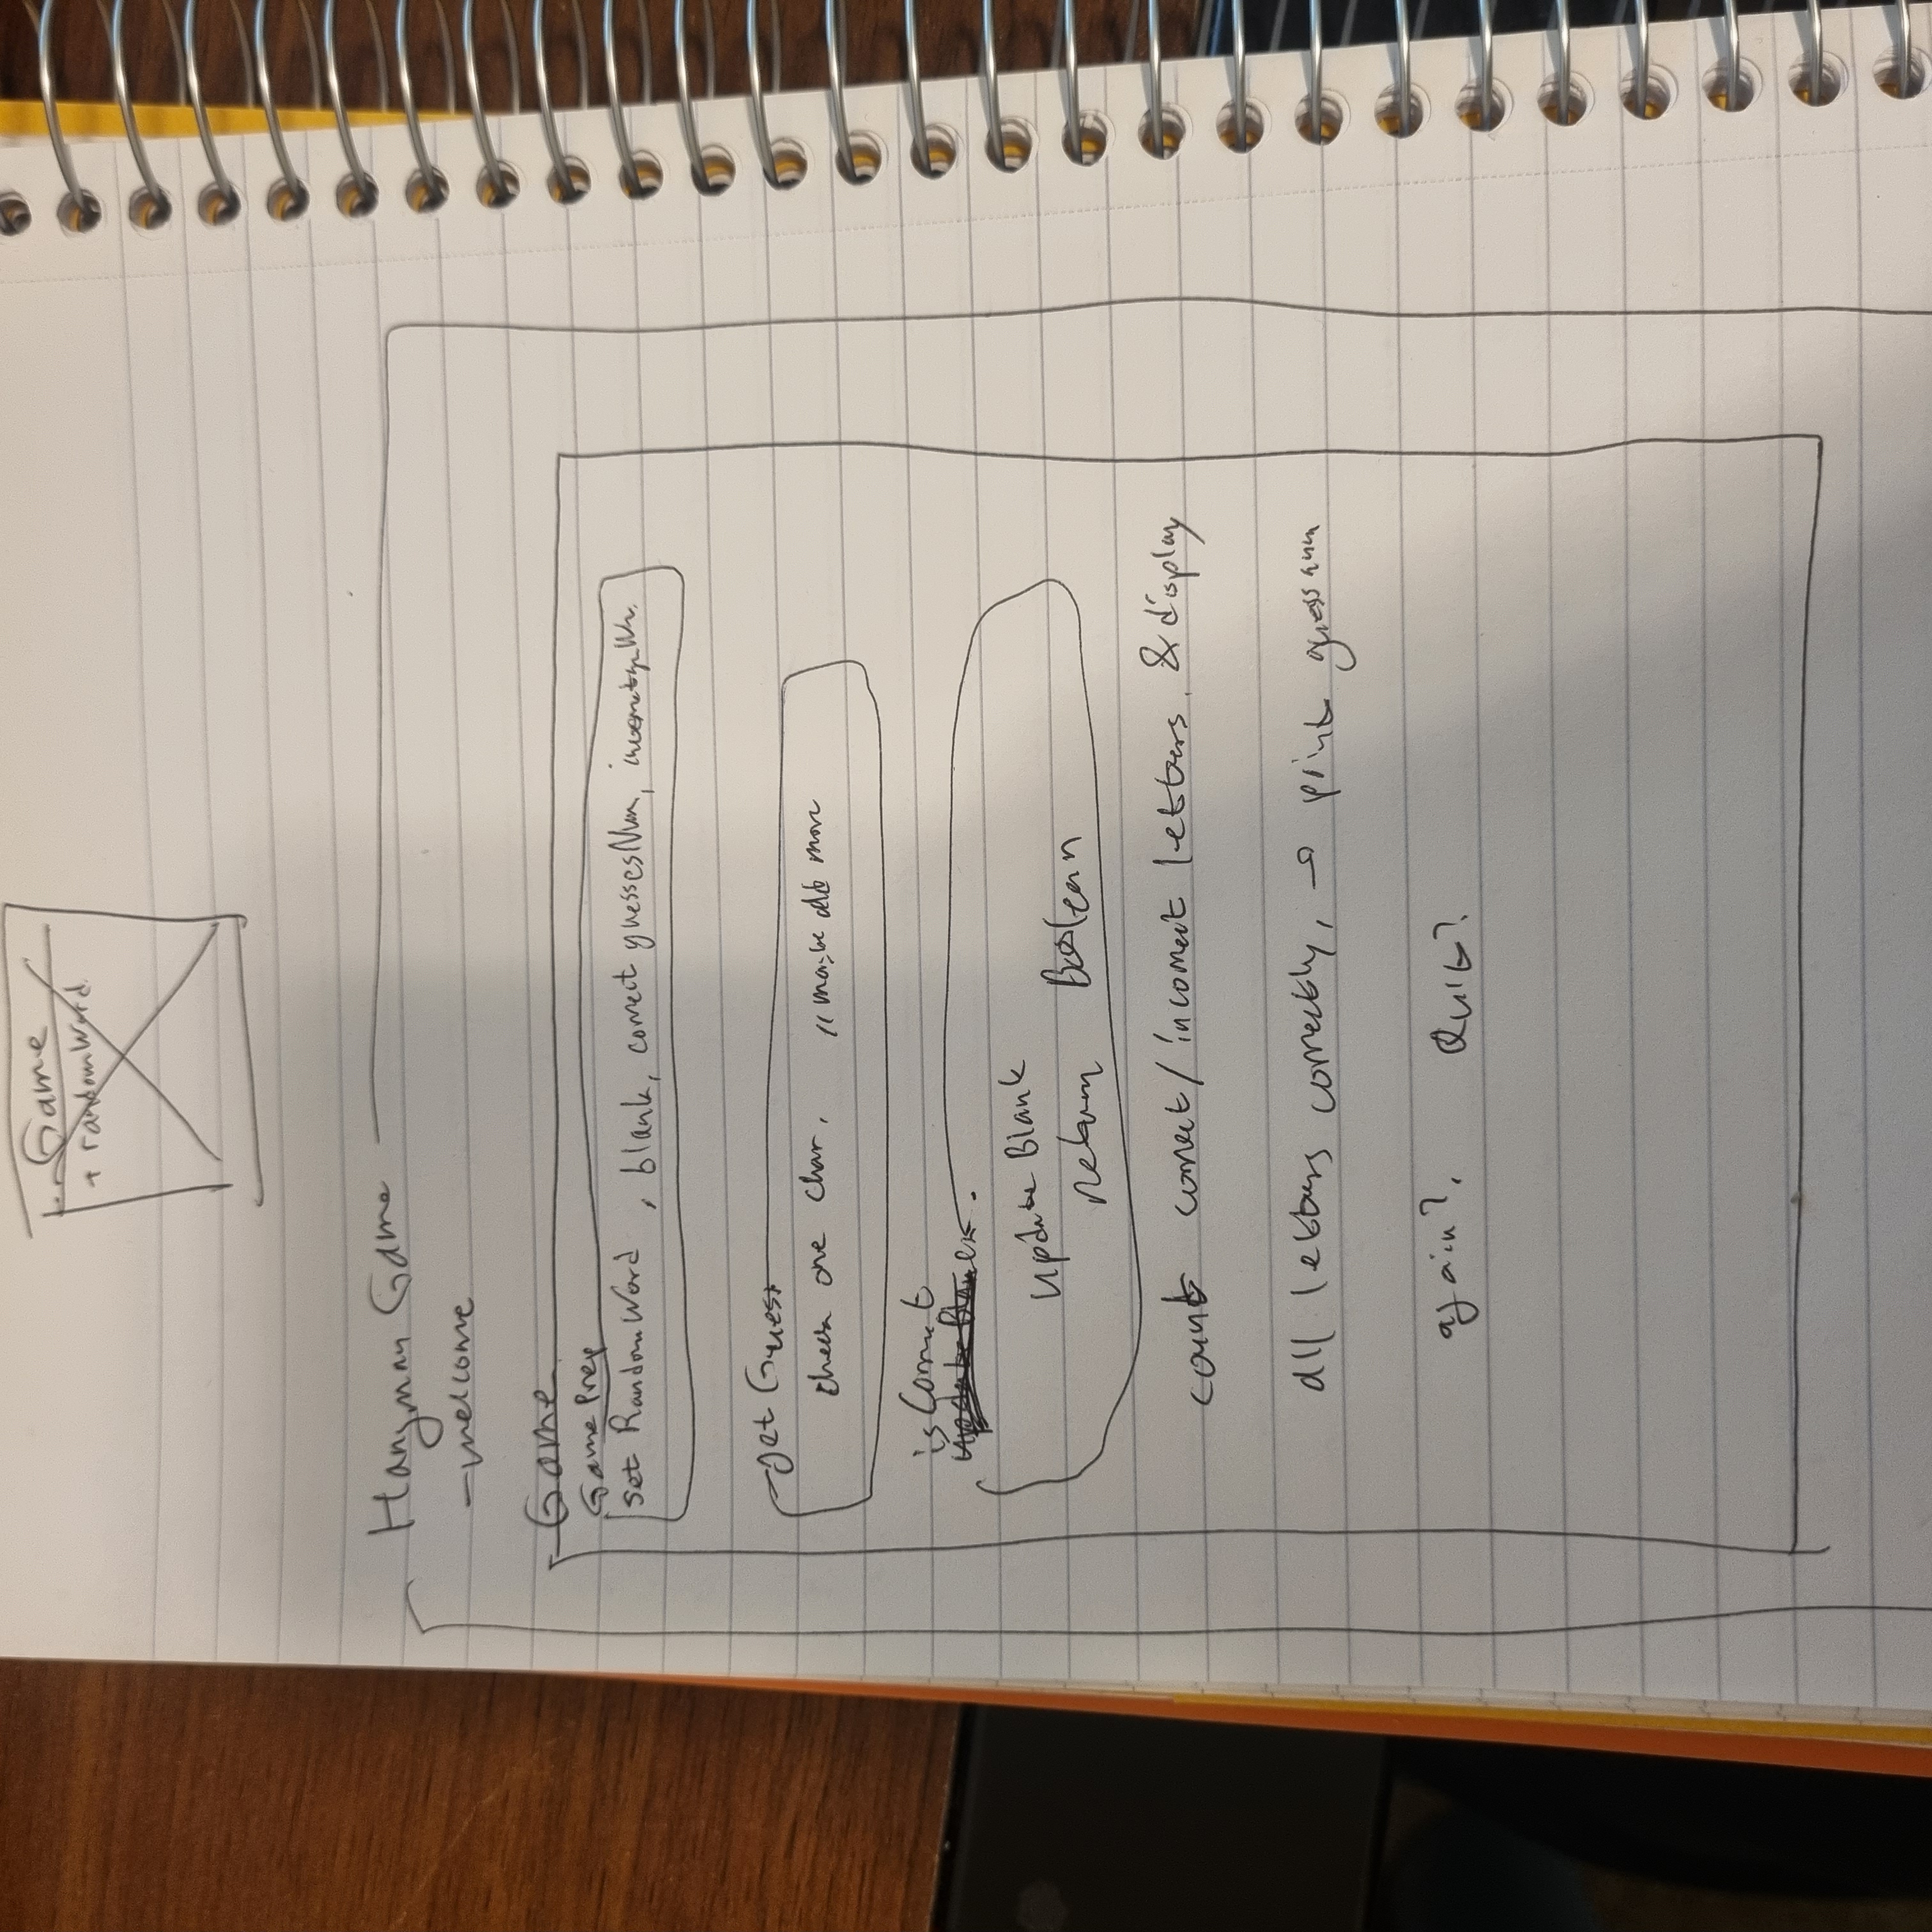 Game
+ randomWord
Hangman Game
- welcome
Game
Game Prep
set RandomWord , blank, correct guessesNum,
get Guess
check one char, // maybe add more
isCorrect
Update Blank.
Update Blank
return Boolean
count correct/incorrect letters. & display
all letters correctly, → print guess num
again?, Quit?